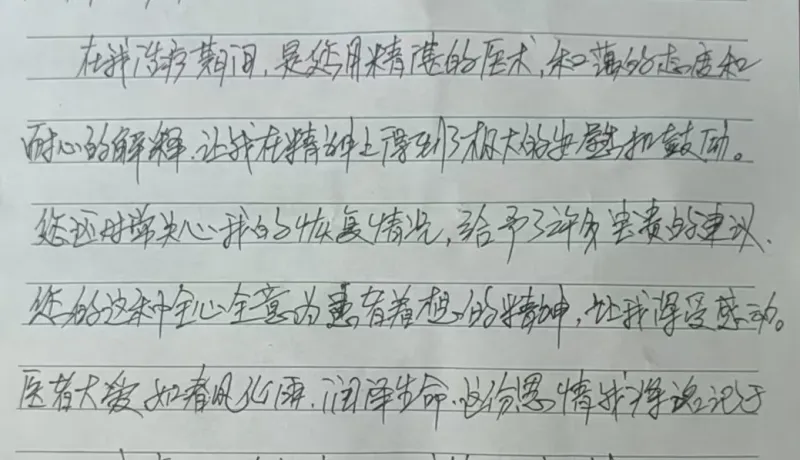 在我治疗期间,是您用精湛的医术,和蔼的态度和
耐心的解释,让我在精神上得到了极大的安慰和鼓励。
您还时常关心我的恢复情况,给予了许多宝贵的建议,
您的这种全心全意为患者着想的精神,让我深受感动。
医者大爱如春风化雨,润泽生命,这份恩情我将铭记于